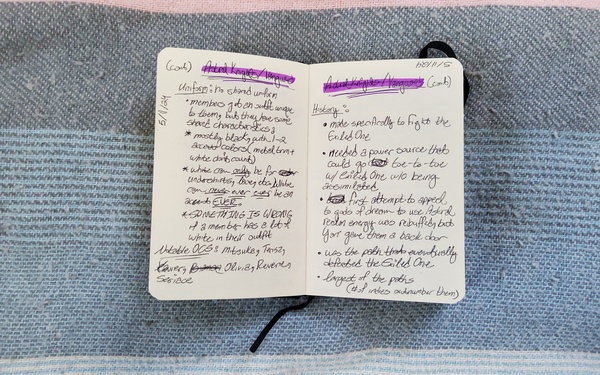 (cont) Astral Knights/Vanguard
5/1/24
Uniform: no shared uniform
• members get an outfit unique
to them, but they have some
shared characteristics:
* mostly black, with 1-2
accent colors (metal trim +
white don't count)
* white can only be for
undershirts, they tho. White
can never ever ever be an
accent EVER.
* SOMETHING IS WRONG
if a member has a lot of
white in their outfit
Notable OCS: Mitsuko,
Olivia, Revenir,
Astral Knights/Vanguard (cont)
History:
• made specifically to fight the
Exiled One
• needed a power source that
could go toe-to-toe
w/ Exiled One w/o being
assimilated
• first attempt to appeal
to gods of dream to use Astral
realm energy was rebuffed, but
gave them a back door
• was the path that eventually
defeated the Exiled One
• largest of the paths
(# of indies outnumber them)